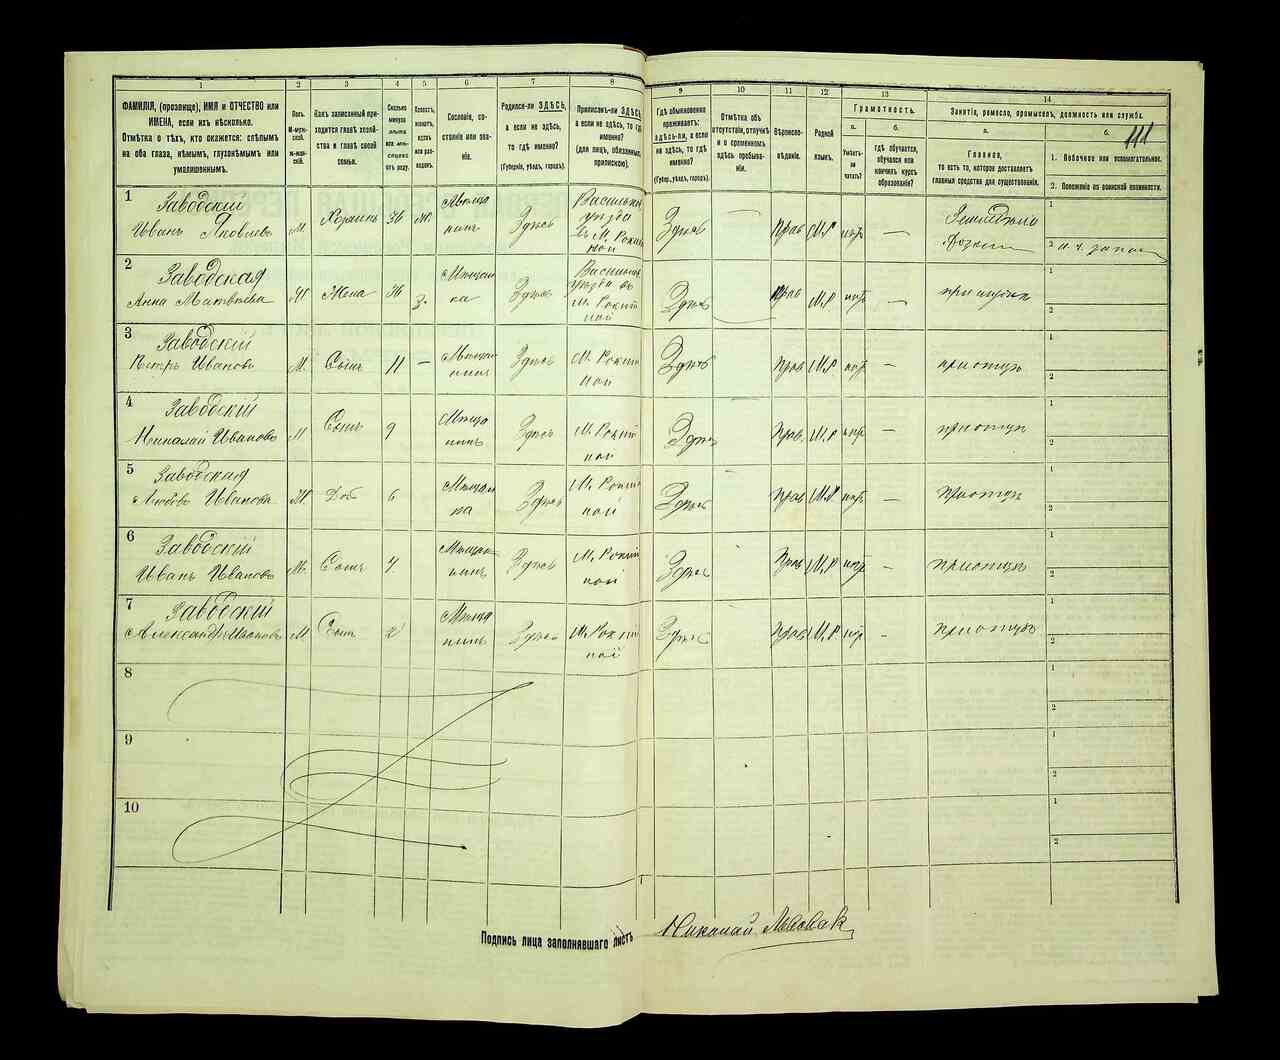 1
2
3
4
5
6
7
8
ФАМИЛІЯ, (прозвище), ИМЯ и ОТЧЕСТВО или
ИМЕНА, если ихъ нѣсколько.
Отмѣтка о тѣхъ, кто окажется: слѣпымъ
на оба глаза, нѣмымъ, глухонѣмымъ или
умалишеннымъ.
Полъ.
М-муж-
ской.
Ж-жен-
скій.
Какъ записанный при-
ходится главѣ хозяй-
ства и главѣ своей
семьи.
Сколько
минуло
лѣтъ
или
мѣсяцевъ
отъ роду.
Холостъ,
женатъ,
вдовъ
или раз-
веденъ.
Сословіе, со-
стояніе или зва-
ніе.
Родился-ли ЗДѢСЬ,
а если не здѣсь,
то гдѣ именно?
(Губернія, уѣздъ, городъ).
Приписанъ-ли ЗДѢСЬ,
а если не здѣсь, то гдѣ
именно?
(для лицъ, обязанныхъ
припискою).
9
10
11
12
13
14
Гдѣ обыкновенно
проживаетъ:
здѣсь-ли, а если
не здѣсь, то гдѣ
именно?
(Губер., уѣздъ, городъ).
Отмѣтка объ
отсутствіи, отлучкѣ
и о временномъ
здѣсь пребыва-
ніи.
Вѣроиспо-
вѣданіе.
Родной
языкъ.
Грамотность.
а.
б.
Умѣетъ-
ли
читать?
Гдѣ обучается,
обучался или
кончилъ курсъ
образованія?
Занятіе, ремесло, промыселъ, должность или служба.
а.
б.
Главное,
то есть то, которое доставляетъ
главныя средства для существованія.
1. Побочное или вспомогательное.
2. Положеніе по воинской повинности.
1
Заводскій
Иванъ Яковлевъ
М
Хозяинъ
36
ж.
Мѣща
нинъ
Здѣсь
Васильк
уѣзда
М. Рокит
ной
Здѣсь
Прав
М.Р
нгр
—
1
2
2
Заводская
Анна Матвѣева
Ж
Жена
36
З.
Мѣщан
ка
Здѣсь
Васильк
уѣзда въ
М. Рокит
ной
Здѣсь
Прав
М.Р
нгр
—
при мужѣ
1
2
3
Заводскій
Петръ Ивановъ
М.
Сынъ
11
—
Мѣщан
нинъ
Здѣсь
М. Рокит
ной
Здѣсь
Прав
М.Р
нгр
—
при отцѣ
1
2
4
Заводскій
Николай Ивановъ
М
Сынъ
9
Мѣща
нинъ
Здѣсь
М. Рокит
ной
Здѣсь
Прав.
М.Р
нгр
—
при отцѣ
1
2
5
Заводская
Любовь Иванова
Ж
Доч
6
Мѣщан
ка
Здѣсь
М. Рокит
ной
Здѣсь
Прав
М.Р
нгр
—
при отцѣ
1
2
6
Заводскій
Иванъ Ивановъ
М.
Сынъ
4
Мѣщан
нинъ
Здѣсь
М. Рокит
ной
Здѣсь
Прав
М.Р
нгр
—
при отцѣ
1
2
7
Заводскій
Александръ Ивановъ
М
Сынъ
2
Мѣща
нинъ
Здѣсь
М. Рокит
ной
Здѣсь
Прав
М.Р.
нгр
-
при отцѣ
1
2
8
1
2
9
1
2
10
1
2
Подпись лица заполнявшаго листъ
Николай